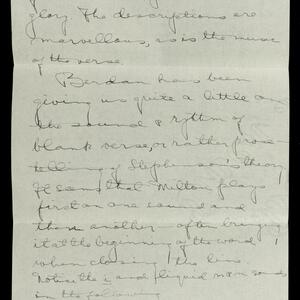 glory. The descriptions are
marvellous, as is the music
of the verse.
Berdan has been
giving us quite a little on
the sound & rythm of
blank verse, or rather prose
telling of Stephenson's theory
that Milton plays
first on one sound and
then another - often bringing
it at the beginning of the word
when closing the line.
Notice the i and liquid n & m sounds
in the following